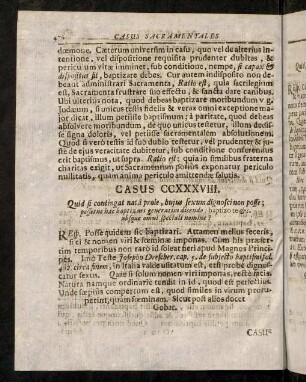 CASUS SACRAMENTALES
dæmone. Cæterum universim in casu, quo vel de alterius intentione, vel dispositione requisita prudenter dubites, &
periculum vitæ imminet, sub conditione, nempe, si capax &
dispositus sis, baptizare debes. Cur autem indisposito non debeant administrari Sacramenta, Ratio est, quia sacrilegium
est, Sacramenta frustrare suo effectu, & sancta dare canibus.
Ubi ulterius nota, quod debeas baptizare moribundum v. g.
Judæum, si unicus testis fidelis & verax omni exceptione major dicat, illum petiisse baptismum; à paritate, quod debeas
absolvere moribundum, de quo unicus testetur, illum dedisse signa doloris, vel petiisse sacramentalem absolutionem.
Quod si verò testis id sub dubio testetur, vel prudenter & juste de ejus veracitate dubitetur, sub conditione conferendus
erit baptismus, ut supra. Ratio est; quia in similibus fraterna
charitas exigit, ut Sacramentum potius exponatur periculo
nullitatis, quam anima periculo amittendæ salutis.
CASUS CCXXXVIII.
Quid si contingat nasci prole, hujus sexum dignosci non posse;
possumne hæc baptizari generatim dicendo, baptizo te absque omni speciali nomine?
Resp. Posse quidem sic baptizari. Attamen melius feceris,
si ei & nomen viri & feminæ imponas. Cum bis præsertim temporibus non rarò id soleat fieri apud Magnos Principes. Imo Teste Josepho Drescher. cap. 5. de subjecto baptismi sol.
12. circa finem, in Italia valde usitatum est, ut sæpe probè dignoscatur sexus. Quin si solum nomen viri imponas, rectè facis.
Natura namque ordinariè tendit in id, quod est perfectius.
Unde sæpius compertum est, quod similes in virum proruperint, quam feminam. Sicut post alios docet
Gobat.
CASUS